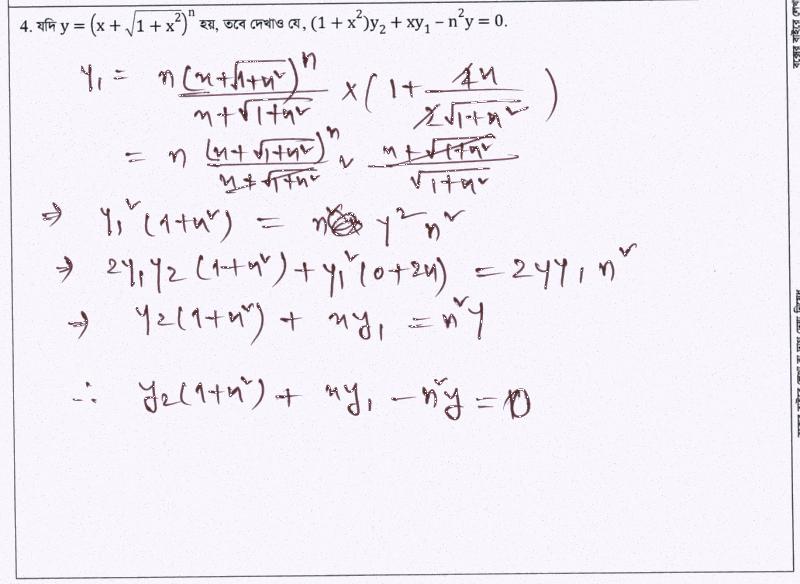 4. যদি y = (x + √(1 + x²))ⁿ হয়, তবে দেখাও যে, (1 + x²)y₂ + xy₁ − n²y = 0.
y₁ = n (x+√(1+x²))ⁿ / (x+√(1+x²)) × (1 + 2x / (2√(1+x²)))
= n (x+√(1+x²))ⁿ / (x+√(1+x²)) × (x+√(1+x²)) / √(1+x²)
⇒ y₁²(1+x²) = y²n²
⇒ 2y₁y₂(1+x²) + y₁²(0+2x) = 2yy₁n²
⇒ y₂(1+x²) + xy₁ = n²y
∴ y₂(1+x²) + xy₁ − n²y = 0